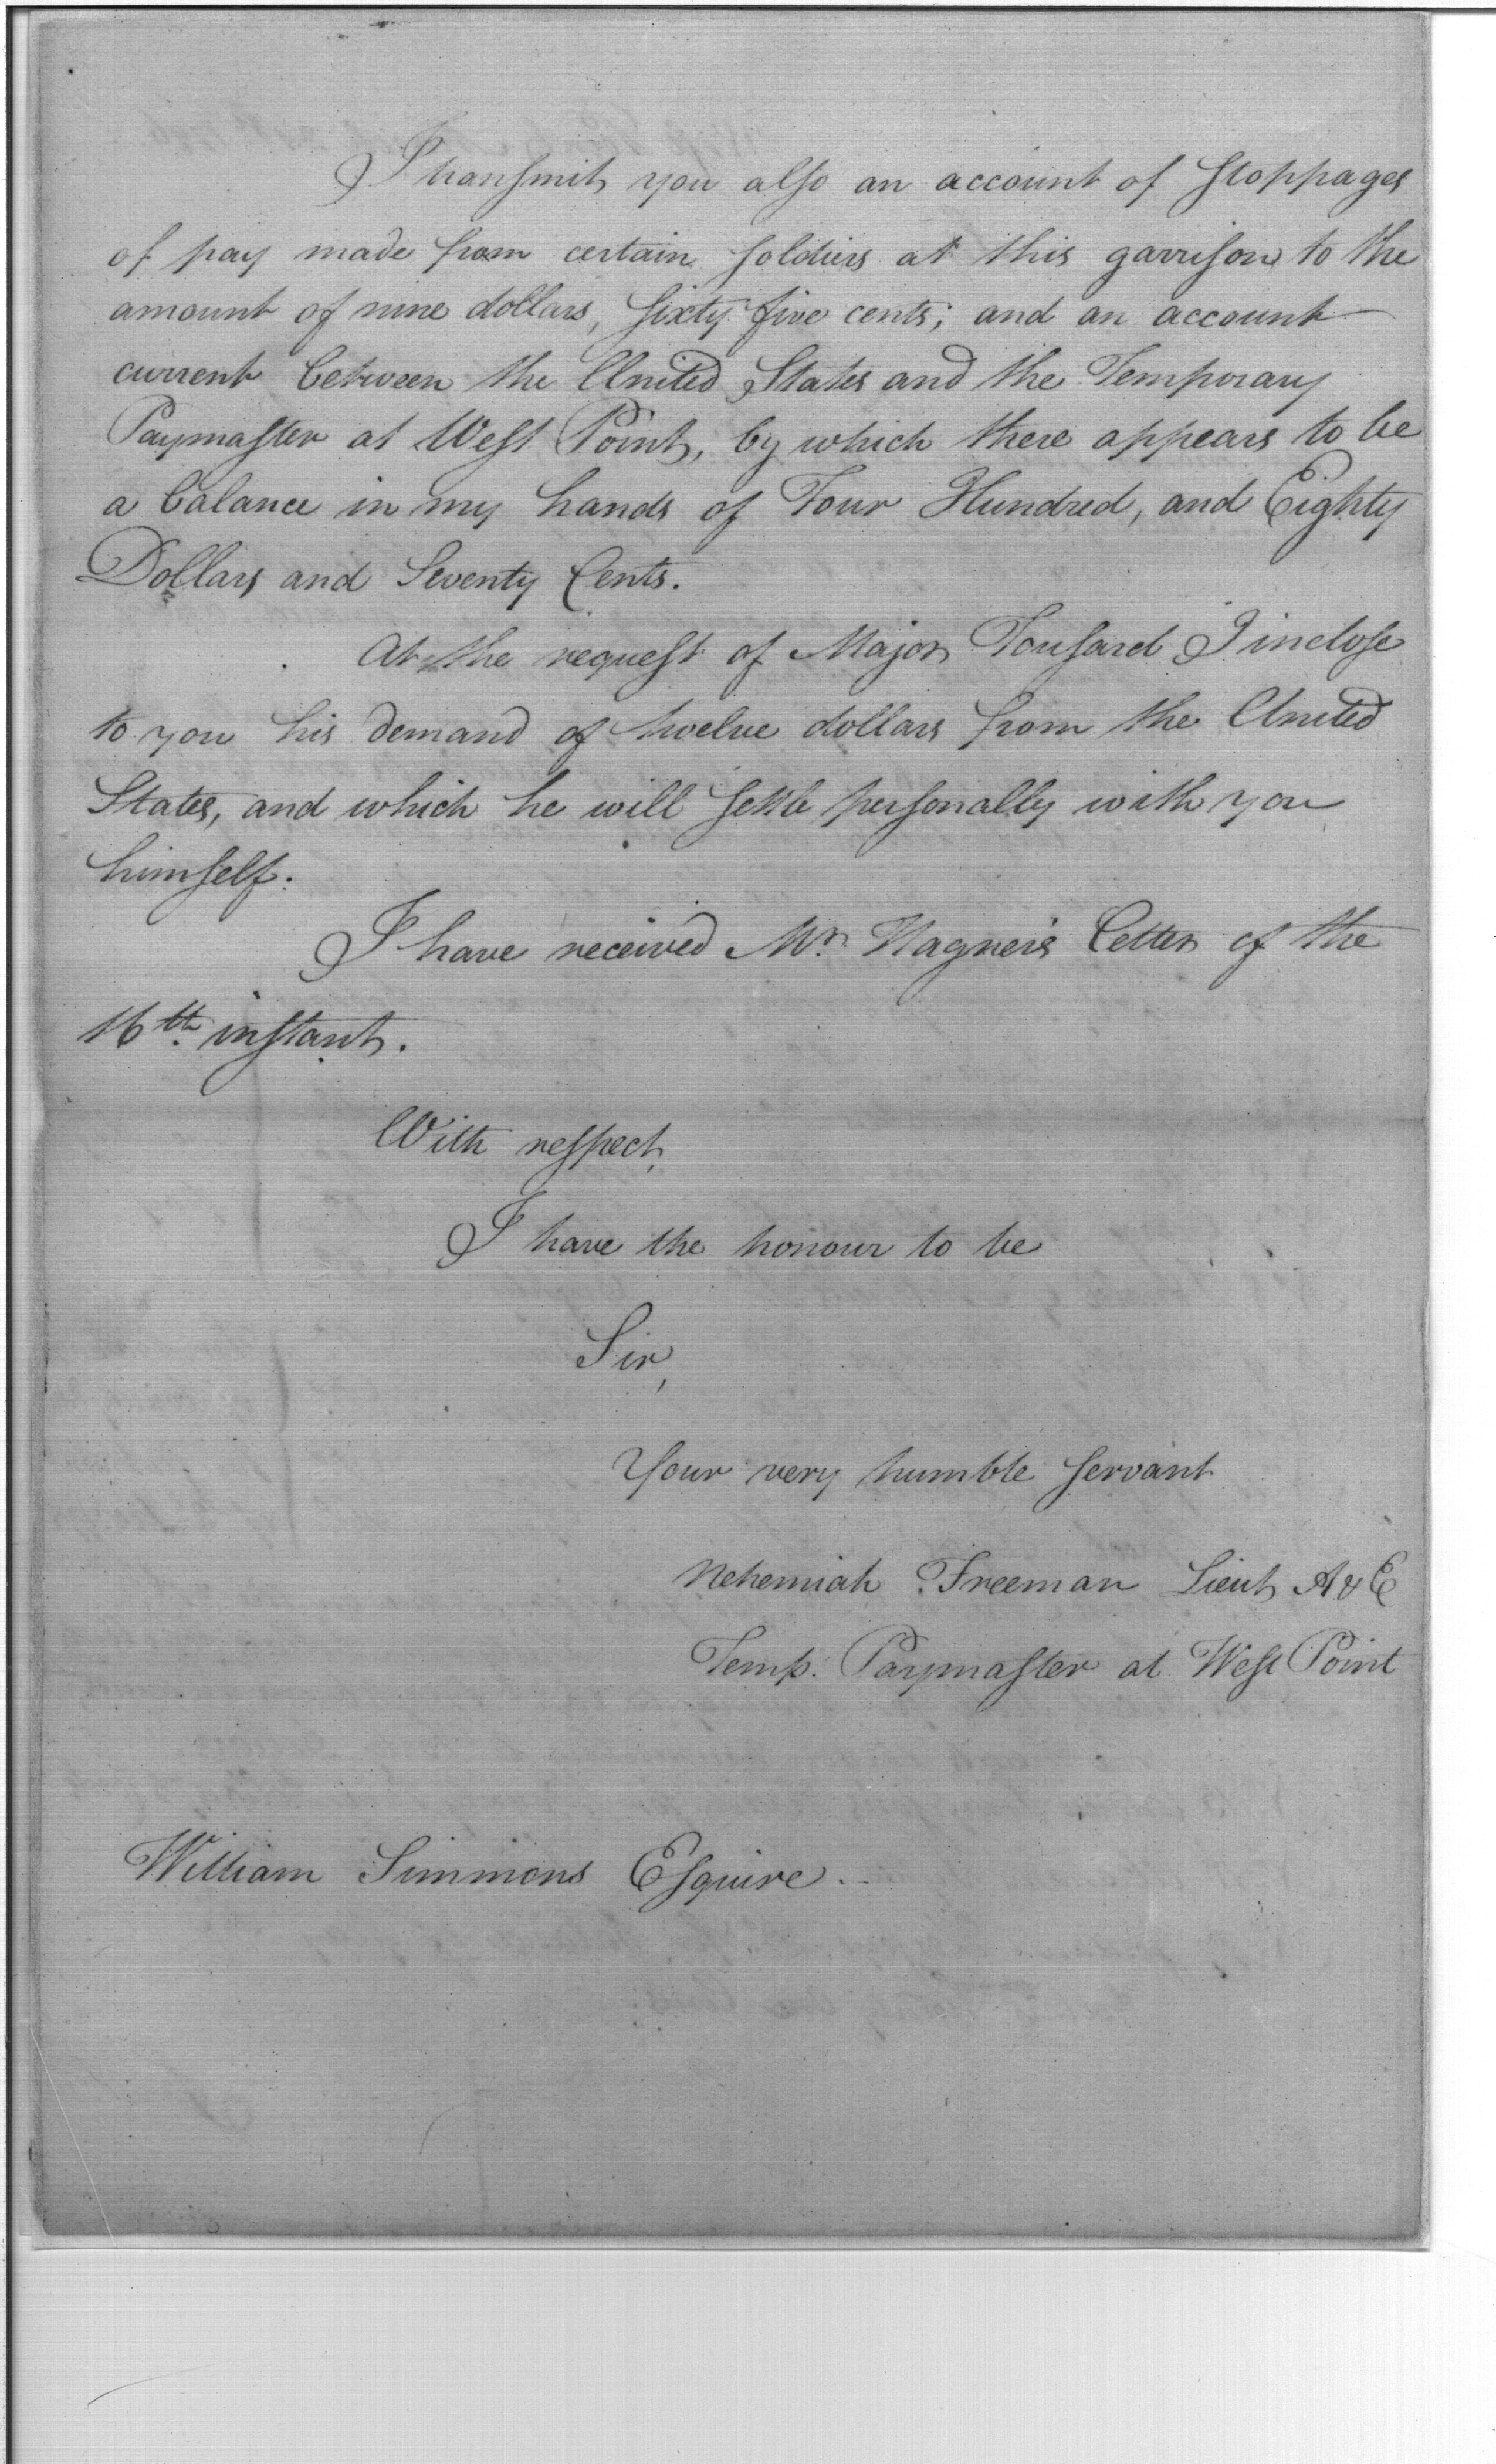 I transmit you also an account of stoppages
of pay made from certain soldiers at this garrison to the
amount of nine dollars, sixty five cents; and an account
current between the United States and the Temporary
Paymaster at West Point, by which there appears to be
a balance in my hands of Four Hundred, and Eighty
Dollars and Seventy Cents.
At the request of Major Tousard I inclose
to you his demand of twelve dollars from the United
States, and which he will settle personally with you
himself.
I have received Mr. Wagner's Letter of the
16th. instant.
With respect,
I have the honour to be
Sir,
Your very humble servant
Nehemiah Freeman Lieut A & E
Temp. Paymaster at West Point
William Simmons Esquire.